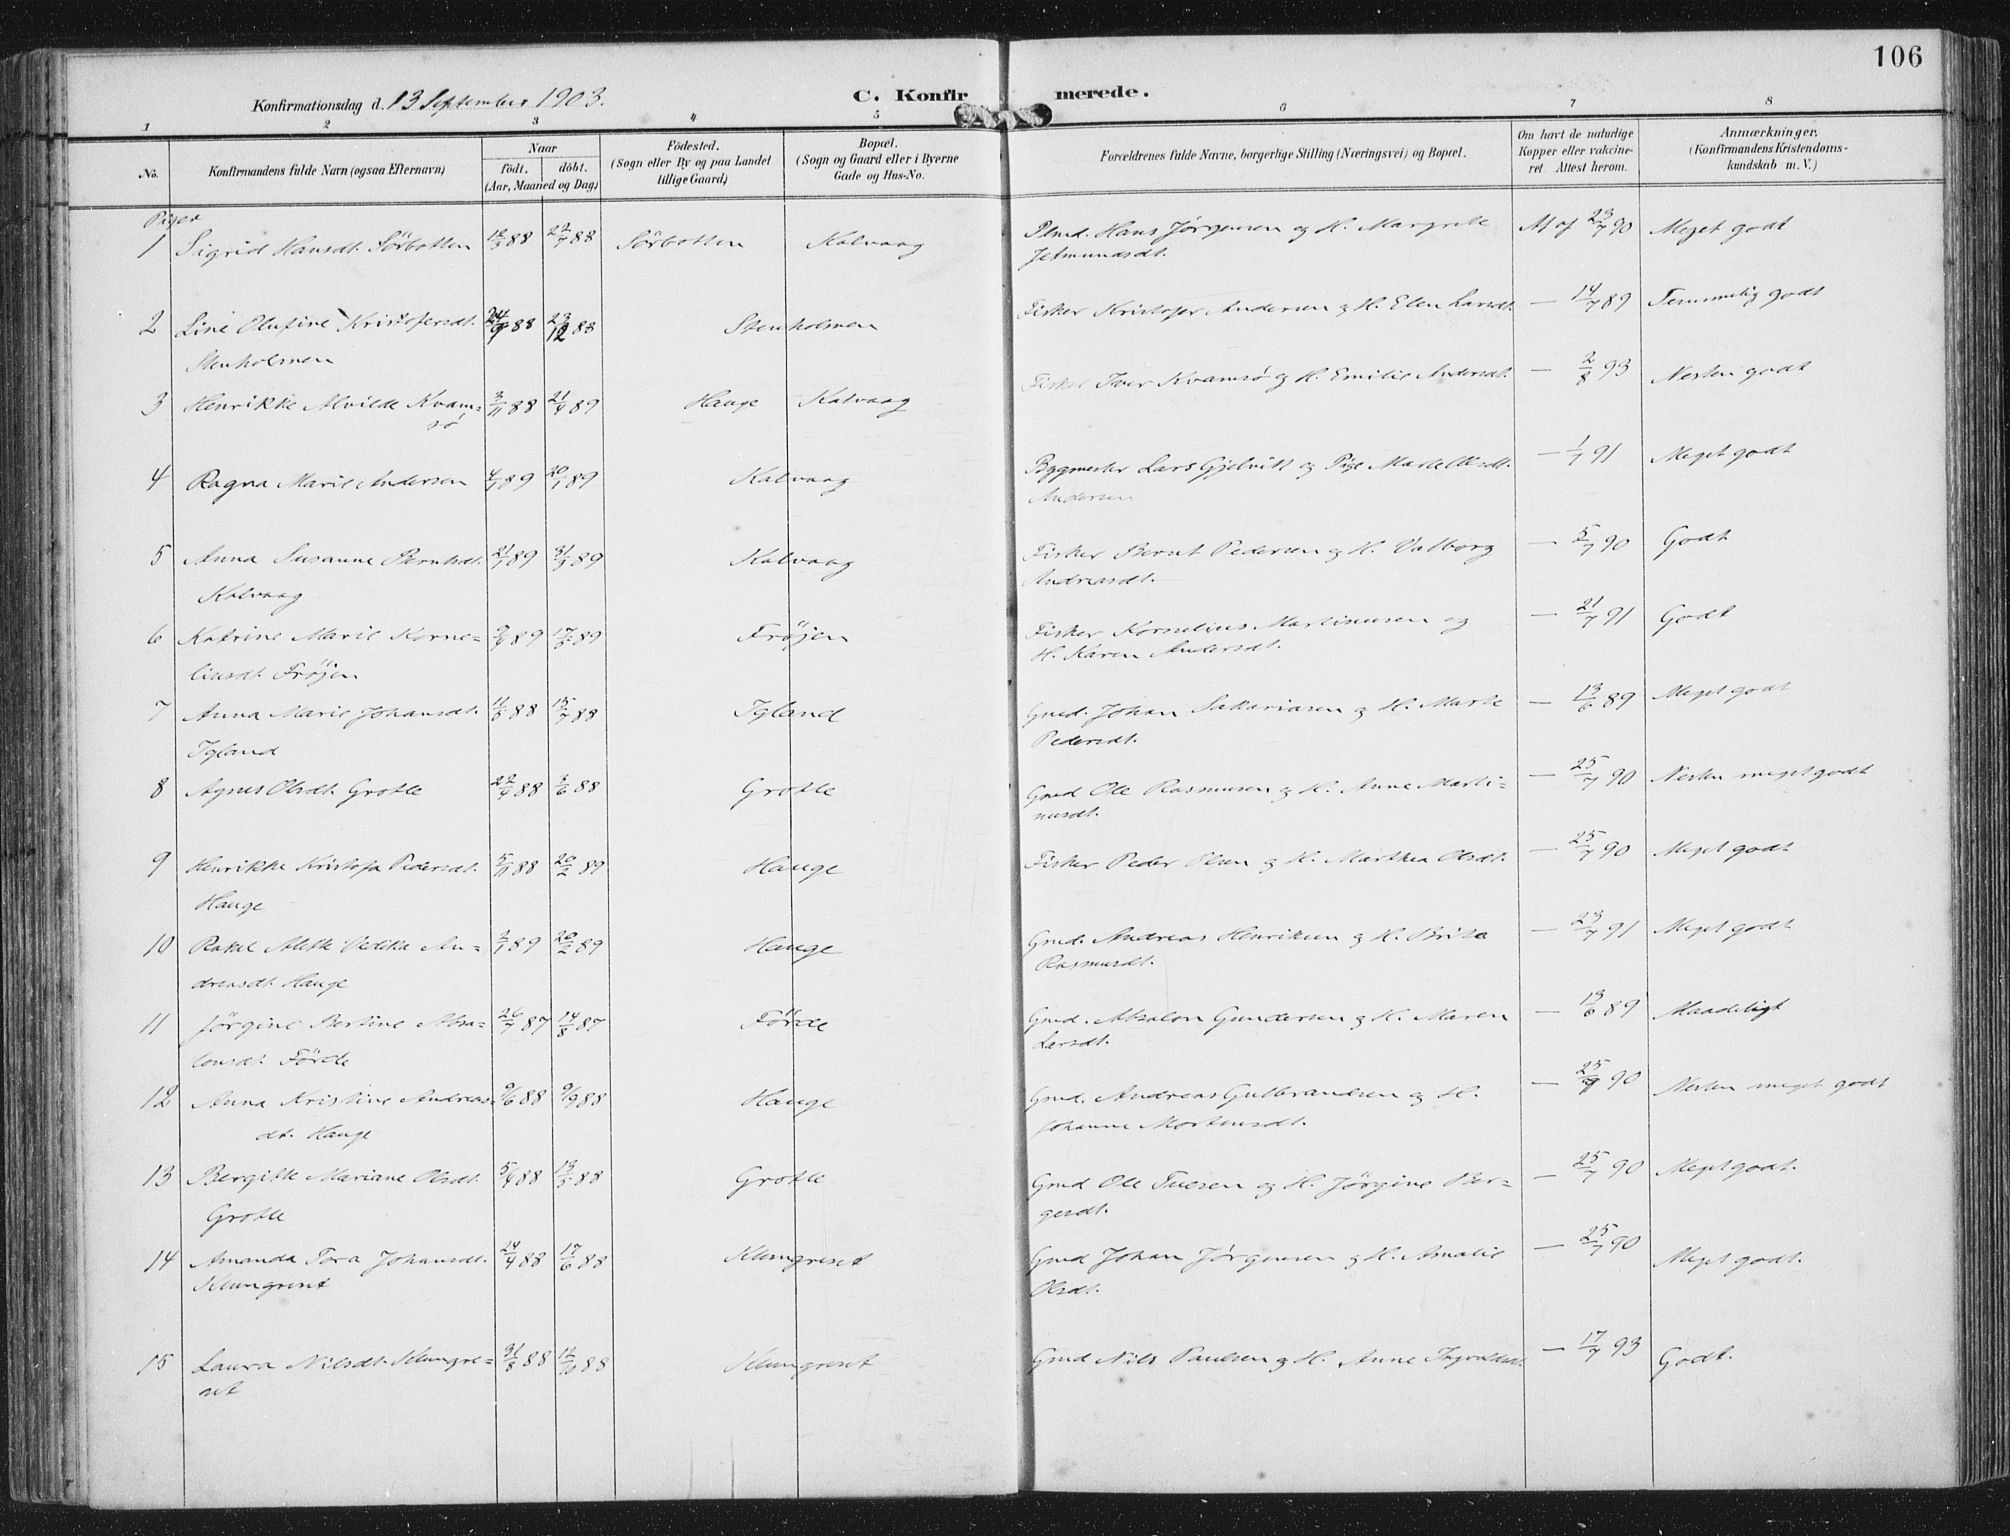 106
Konfirmationsdag d. 13 September 1903.
C. Konfir merede.
1 2 3 4 5 6 7 8
No.
Konfirmandens fulde Navn (ogsaa Efternavn)
Naar
födt. döbt.
(Aar, Maaned og Dag)
Födested.
(Sogn eller By og paa Landet
tillige Gaard)
Bopæl.
(Sogn og Gaard eller i Byerne
Gade og Hus-No.
Forældrenes fulde Navne, borgerlige Stilling (Næringsvei) og Bopæl.
Om havt de naturlige
Kopper eller vakcine-
ret Attest herom.
Anmærkninger.
(Konfirmandens Kristendoms-
kundskab m. V.)
Piger
1 Sigrid Hansdt. Sörbotten 88 22/7 88 Sörbotten Kalvaag Hans Jørgensen og H. Margrete At af 23/7 90 Meget godt
Jetmundsdt.
2 Line Olufine Kristofersdt. 88 23/12 88 Stenholmen Fisker Kristofer Andersen og H. Elen Larsdt. — 14/7 89 Temmelig godt
Stenholmen
3 Henrikke Alvilde Kvam= 3/11 88 21/4 89 Hauge Kalvaag Fisker Iver Kvamsø og H. Emilie Andersdt. — 2/8 93 Nesten godt
sö
4 Ragna Marie Andersen 4/1 89 20/1 89 Kalvaag Bygmester Lars Gjelvik og Pige Marte — 1/7 91 Meget godt
Andersen
5 Anna Susanne Berntsdt. 21/1 89 31/3 89 Kalvaag Fisker Bernt Pedersen og H. Valborg — 5/7 90 Godt
Kalvaag
Andreasdt.
6 Katrine Marie Korne= 89 17/5 89 Fröjen Fisker Kornelius Martinusen og — 21/7 91 Godt
liusdt. Fröjen
H. Karen Andersdt.
7 Anna Marie Johansdt. 11/5 88 15/7 88 Igland Gmd. Johan Sakariasen og H. Marte — 13/6 89 Meget godt
Igland
Pedersdt.
8 Agnes Olsdt. Grotle 22/4 88 3/6 88 Grotle Gmd Ole Rasmusen og H. Anne Marti= — 25/7 90 Nesten meget godt
nusdt.
9 Henrikke Kristofa Pedersdt. 5/11 88 20/2 89 Hauge Fisker Peder Olsen og H. Marthea Olsdt. — 25/7 90 Meget godt
Hauge
10 Rakel Alette An= 2/1 89 20/2 89 Hauge Gmd. Andreas Henriksen og H. Brite — 23/7 91 Meget godt
dreasdt. Hauge
Rasmusdt.
11 Jörgine Bertine Absa= 26/7 87 14/8 87 Förde Gmd. Absalon Gundersen og H. Maren — 13/6 89 Maadeligt
lonsdt. Förde
Larsdt.
12 Anna Kristine Andreas= 9/6 88 9/9 88 Hauge Gmd. Andreas Gulbrandsen og H. — 25/7 90 Nesten meget godt
dt. Hauge
Johanne Mortensdt.
13 Bergitte Mariane Olsdt. 5/4 88 13/5 88 Grotle Gmd Ole Tuesen og H. Jörgine Ber= — 25/7 90 Meget godt.
Grotle
gesdt.
14 Amanda Tora Johansdt. 24/4 88 17/6 88 Klungreset Gmd Johan Jörgensen og H. Amalie — 25/7 90 Meget godt.
Klungreset
Olsdt.
15 Laura Nilsdt. Klungre= 31/8 88 12/10 88 Klungreset Gmd Nils Paulsen og H. Anne Ingvaldsdt. — 17/7 93 Godt.
set